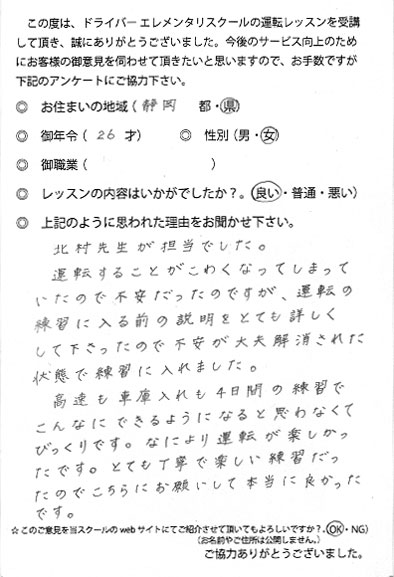 この度は、ドライバーエレメンタリスクールの運転レッスンを受講
して頂き、誠にありがとうございました。今後のサービス向上のため
にお客様の御意見を伺わせて頂きたいと思いますので、お手数ですが
下記のアンケートにご協力下さい。
◎ お住まいの地域(静岡 都・県)
◎ 御年令(26才) ◎ 性別(男・女)
◎ 御職業( )
◎ レッスンの内容はいかがでしたか?。(良い・普通・悪い)
◎ 上記のように思われた理由をお聞かせ下さい。
北村先生が担当でした。
運転することがこわくなってしまって
いたので不安だったのですが、運転の
練習に入る前の説明をとても詳しく
して下さったので不安が大夫解消された
状態で練習に入れました。
高速も車庫入れも4日間の練習で
こんなにできるようになると思わなくて
びっくりです。なにより運転が楽しかっ
たです。とても丁寧で楽しい練習だっ
たのでこちらにお願いして本当に良かった
です。
☆このご意見を当スクールのwebサイトにてご紹介させて頂いてもよろしいですか?。(OK・NG)
(お名前やご住所は公開しません。)
ご協力ありがとうございました。